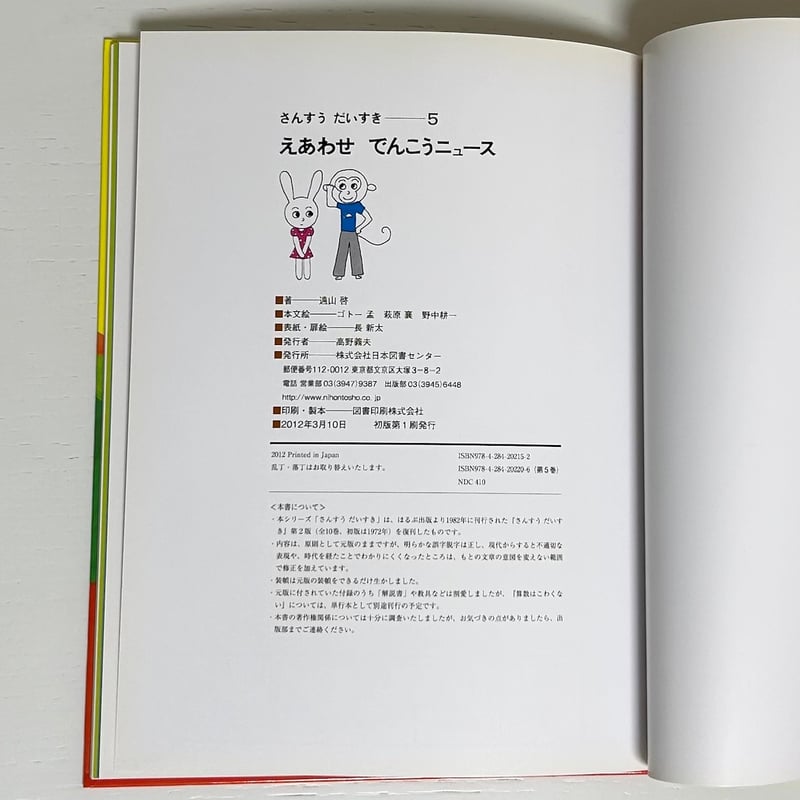 さんすう だいすき───5
えあわせ でんこうニュース
■著───遠山 啓
■本文絵───ゴトー 孟 萩原 襄 野中耕一
■表紙・扉絵───長 新太
■発行者───高野義夫
■発行所───株式会社日本図書センター
郵便番号112-0012 東京都文京区大塚3−8−2
電話 営業部03(3947)9387 出版部03(3945)6448
http://www.nihontosho.co.jp
■印刷・製本───図書印刷株式会社
■2012年3月10日 初版第1刷発行
2012 Printed in Japan ISBN978-4-284-20215-2
乱丁・落丁はお取り替えいたします。 ISBN978-4-284-20220-6 (第5巻)
NDC 410
＜本書について＞
・本シリーズ「さんすう だいすき」は、ほるぷ出版より1982年に刊行された『さんすう だいす
き』第2版（全10巻、初版は1972年）を復刊したものです。
・内容は、原則として元版のままですが、明らかな誤字脱字は正し、現代からすると不適切な
表現や、時代を経たことでわかりにくくなったところは、もとの文章の意図を変えない範囲
で修正を加えています。
・装幀は元版の装幀をできるだけ生かしました。
・元版に付されていた付録のうち「解説書」や教具などは割愛しましたが、「算数はこわくな
い」については、単行本として別途刊行の予定です。
・本書の著作権関係については十分に調査いたしましたが、お気づきの点がありましたら、出
版部までご連絡ください。